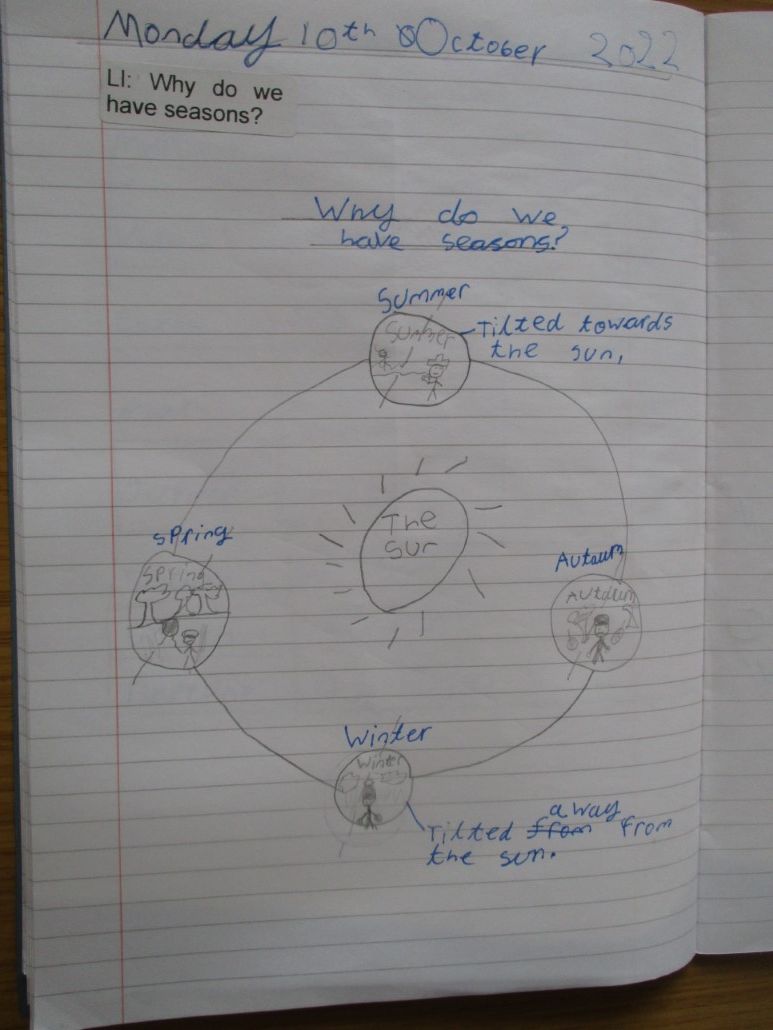 Monday 10th October 2022
LI: Why do we
have seasons?
Why do we
have seasons?
Summer
Summer
Tilted towards
the sun,
The
sun
Spring
Spring
Autaum
Autaum
Winter
Winter
away
Tilted from from
the sun.